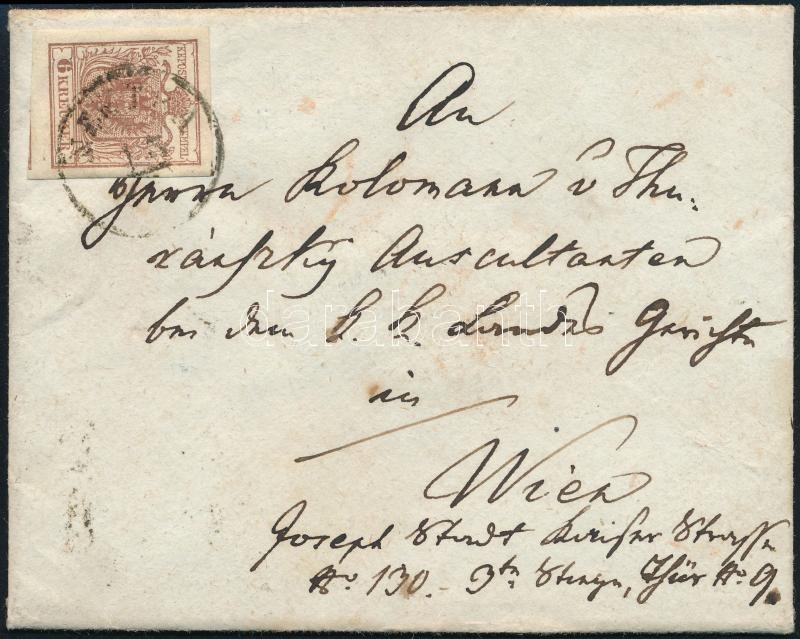 6 KREUZER
An
Herrn Kolomann v Thu-
ránszky Auscultanten
bei dem k. k. Landes Gerichte
in
Wien
Joseph Stadt Kaiser Strasse
No. 130. 3te Stiege, Thür No. 9
darabanth